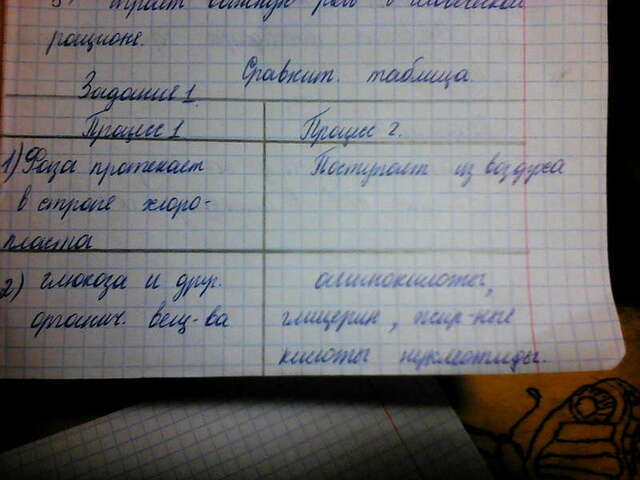 играет важную роль в человеческом
рационе.
Сравнит. таблица
Задание 1
Процесс 1 Процесс 2.
1) Фаза протекает Поступает из воздуха
в строме хлоро-
пласта
2) глюкоза и друг. аминокислоты,
органич. вещ-ва глицерин, жир-ные
кислоты нуклеотиды.